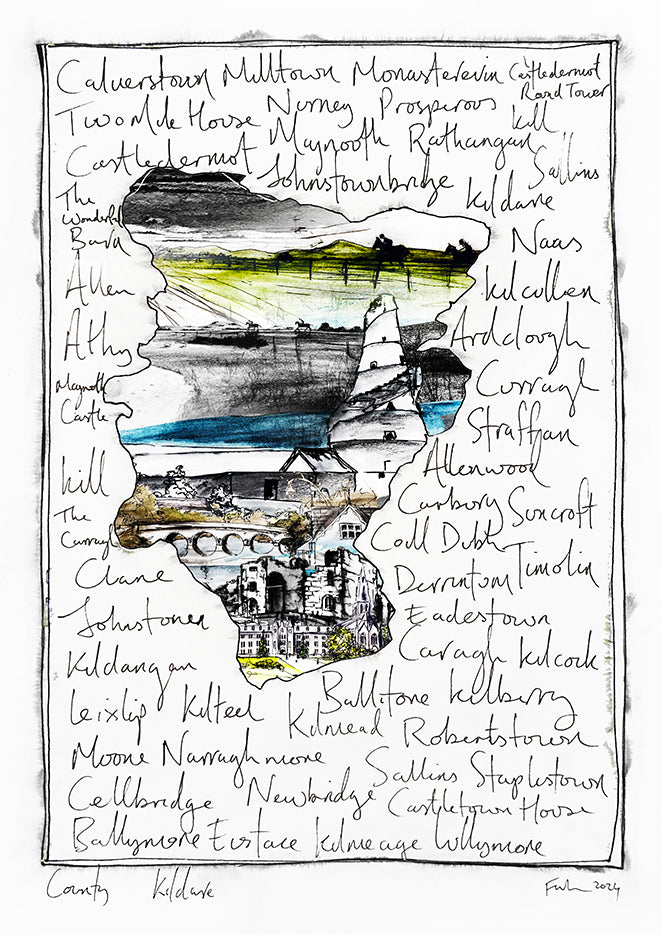 Calverstown Milltown Monasterevin Castledermot
Round Tower
Two Mile House Nurney Prosperous Kill
Castledermot Maynooth Rathangan Sallins
Johnstownbridge Kildare
The
Wonderful
Barn
Naas
Allen
Kilcullen
Athy
Ardclough
Maynooth
Castle
Curragh
Straffan
Kill
Allenwood
The
Curragh
Carbury Suncroft
Coill Dubh
Clane
Derrinturn Timolin
Johnstown
Eadestown
Kildangan
Caragh Kilcock
Leixlip Kilteel Kilmead Ballitore Kilberry
Robertstown
Moone Narraghmore
Sallins Staplestown
Cellbridge Newbridge Castletown House
Ballymore Eustace Kilmeage Lullymore
County Kildare
2024